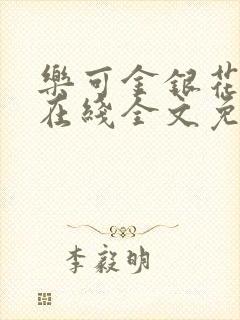 樂可金銀花
在綫全文免
李毅明